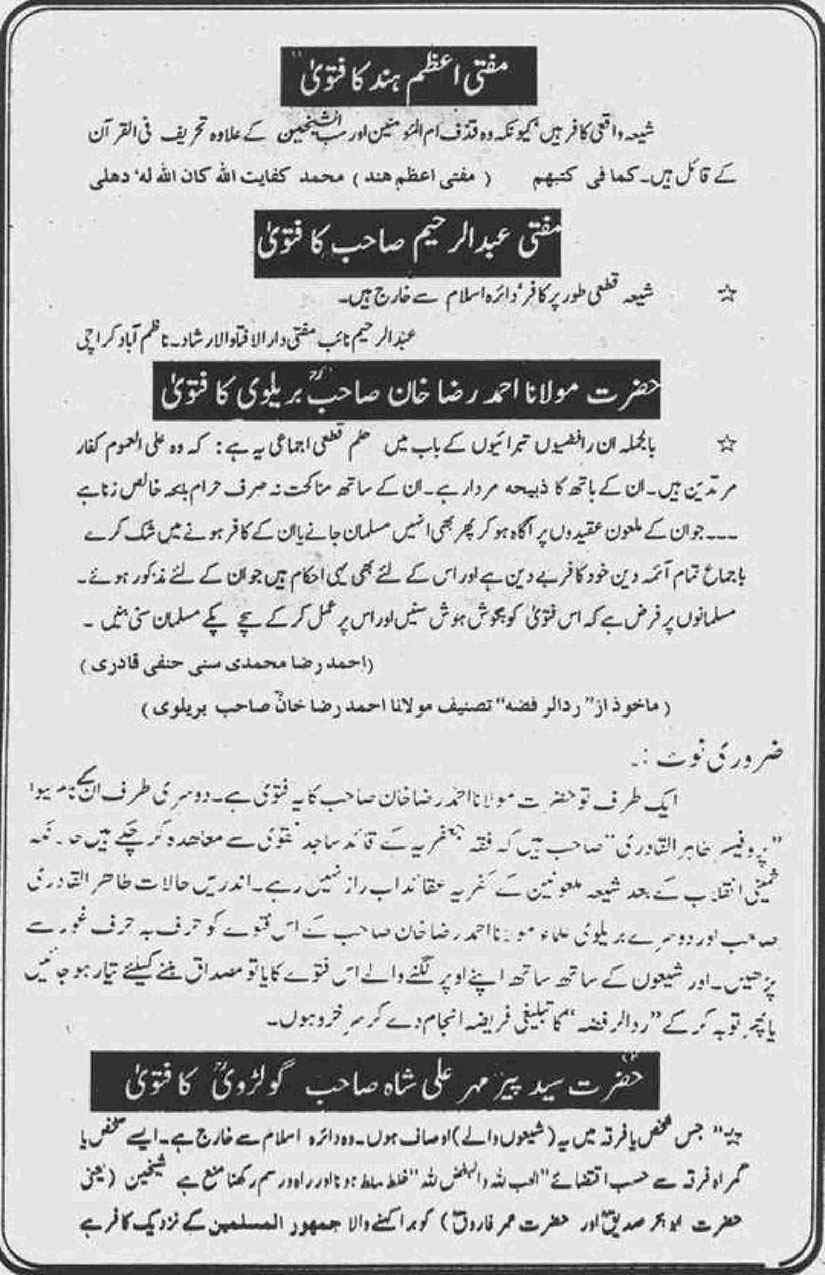 مفتی اعظم ہند کا فتویٰ
شیعہ واقعی کافر ہیں‘ کیونکہ وہ قذف ام المؤمنین اور سب الشیخین کے علاوہ تحریف فی القرآن
کے قائل ہیں۔ کما فی کتبھم ( مفتی اعظم ھند ) محمد کفایت اللہ کان اللہ لہ‘ دھلی
مفتی عبدالرحیم صاحب کا فتویٰ
☆ شیعہ قطعی طور پر کافر‘ دائرہ اسلام سے خارج ہیں۔
عبدالرحیم نائب مفتی دار الافتاء والارشاد۔ ناظم آباد کراچی
حضرت مولانا احمد رضا خان صاحبؒ بریلوی کا فتویٰ
☆ بالجملہ ان رافضیوں تبرائیوں کے باب میں حکم قطعی اجماعی یہ ہے : کہ وہ علی العموم کفار
مرتدین ہیں۔ ان کے ہاتھ کا ذبیحہ مردار ہے۔ ان کے ساتھ مناکحت نہ صرف حرام بلکہ خالص زنا ہے
۔۔۔ جو ان کے ملعون عقیدوں پر آگاہ ہو کر پھر بھی انہیں مسلمان جانے یا ان کے کافر ہونے میں شک کرے
باجماع تمام آئمہ دین خود کافر بے دین ہے اور اس کے لئے بھی یہی احکام ہیں جو ان کے لئے مذکور ہوئے۔
مسلمانوں پر فرض ہے کہ اس فتویٰ کو بگوش ہوش سنیں اور اس پر عمل کر کے سچے پکے مسلمان سنی بنیں ۔
(احمد رضا محمدی سنی حنفی قادری )
( ماخوذ از’’ ردالرفضہ‘‘ تصنیف مولانا احمد رضا خانؒ صاحب بریلوی )
ضروری نوٹ :۔
ایک طرف تو حضرت مولانا احمد رضا خان صاحب کا یہ فتویٰ ہے۔ دوسری طرف ان کے نام لیوا
’’پروفیسر طاہر القادری‘‘ صاحب ہیں کہ فقہ جعفریہ کے قائد ساجد نقوی سے معاھدہ کر چکے ہیں
خمینی انقلاب کے بعد شیعہ ملعونین کے کفریہ عقائد اب راز نہیں رہے۔ اندریں حالات طاھر القادری
صاحب اور دوسرے بریلوی علماء مولانا احمد رضا خان صاحب کے اس فتوے کو حرف بہ حرف غور سے
پڑھیں۔ اور شیعوں کے ساتھ ساتھ اپنے اوپر لگنے والے اس فتوے کا یا تو مصداق بننے کیلئے تیار ہو جائیں
یا پھر توبہ کر کے ’’ردالرفضہ‘‘ کا تبلیغی فریضہ انجام دے کر سرخرو ہوں۔
حضرت سید پیر مہر علی شاہ صاحب گولڑویؒ کا فتویٰ
☆ ’’ جس شخص یا فرقہ میں یہ (شیعوں والے) اوصاف ہوں۔ وہ دائرہ اسلام سے خارج ہے۔ ایسے شخص یا
گمراہ فرقہ سے حسب اقتضائے ’’الحب للہ والبغض للہ‘‘ خلط ملط ہونا اور راہ و رسم رکھنا منع ہے شیخین (یعنی
حضرت ابوبکر صدیقؓ اور حضرت عمر فاروقؓ) کو برا کہنے والا جمھور المسلمین کے نزدیک کافر ہے